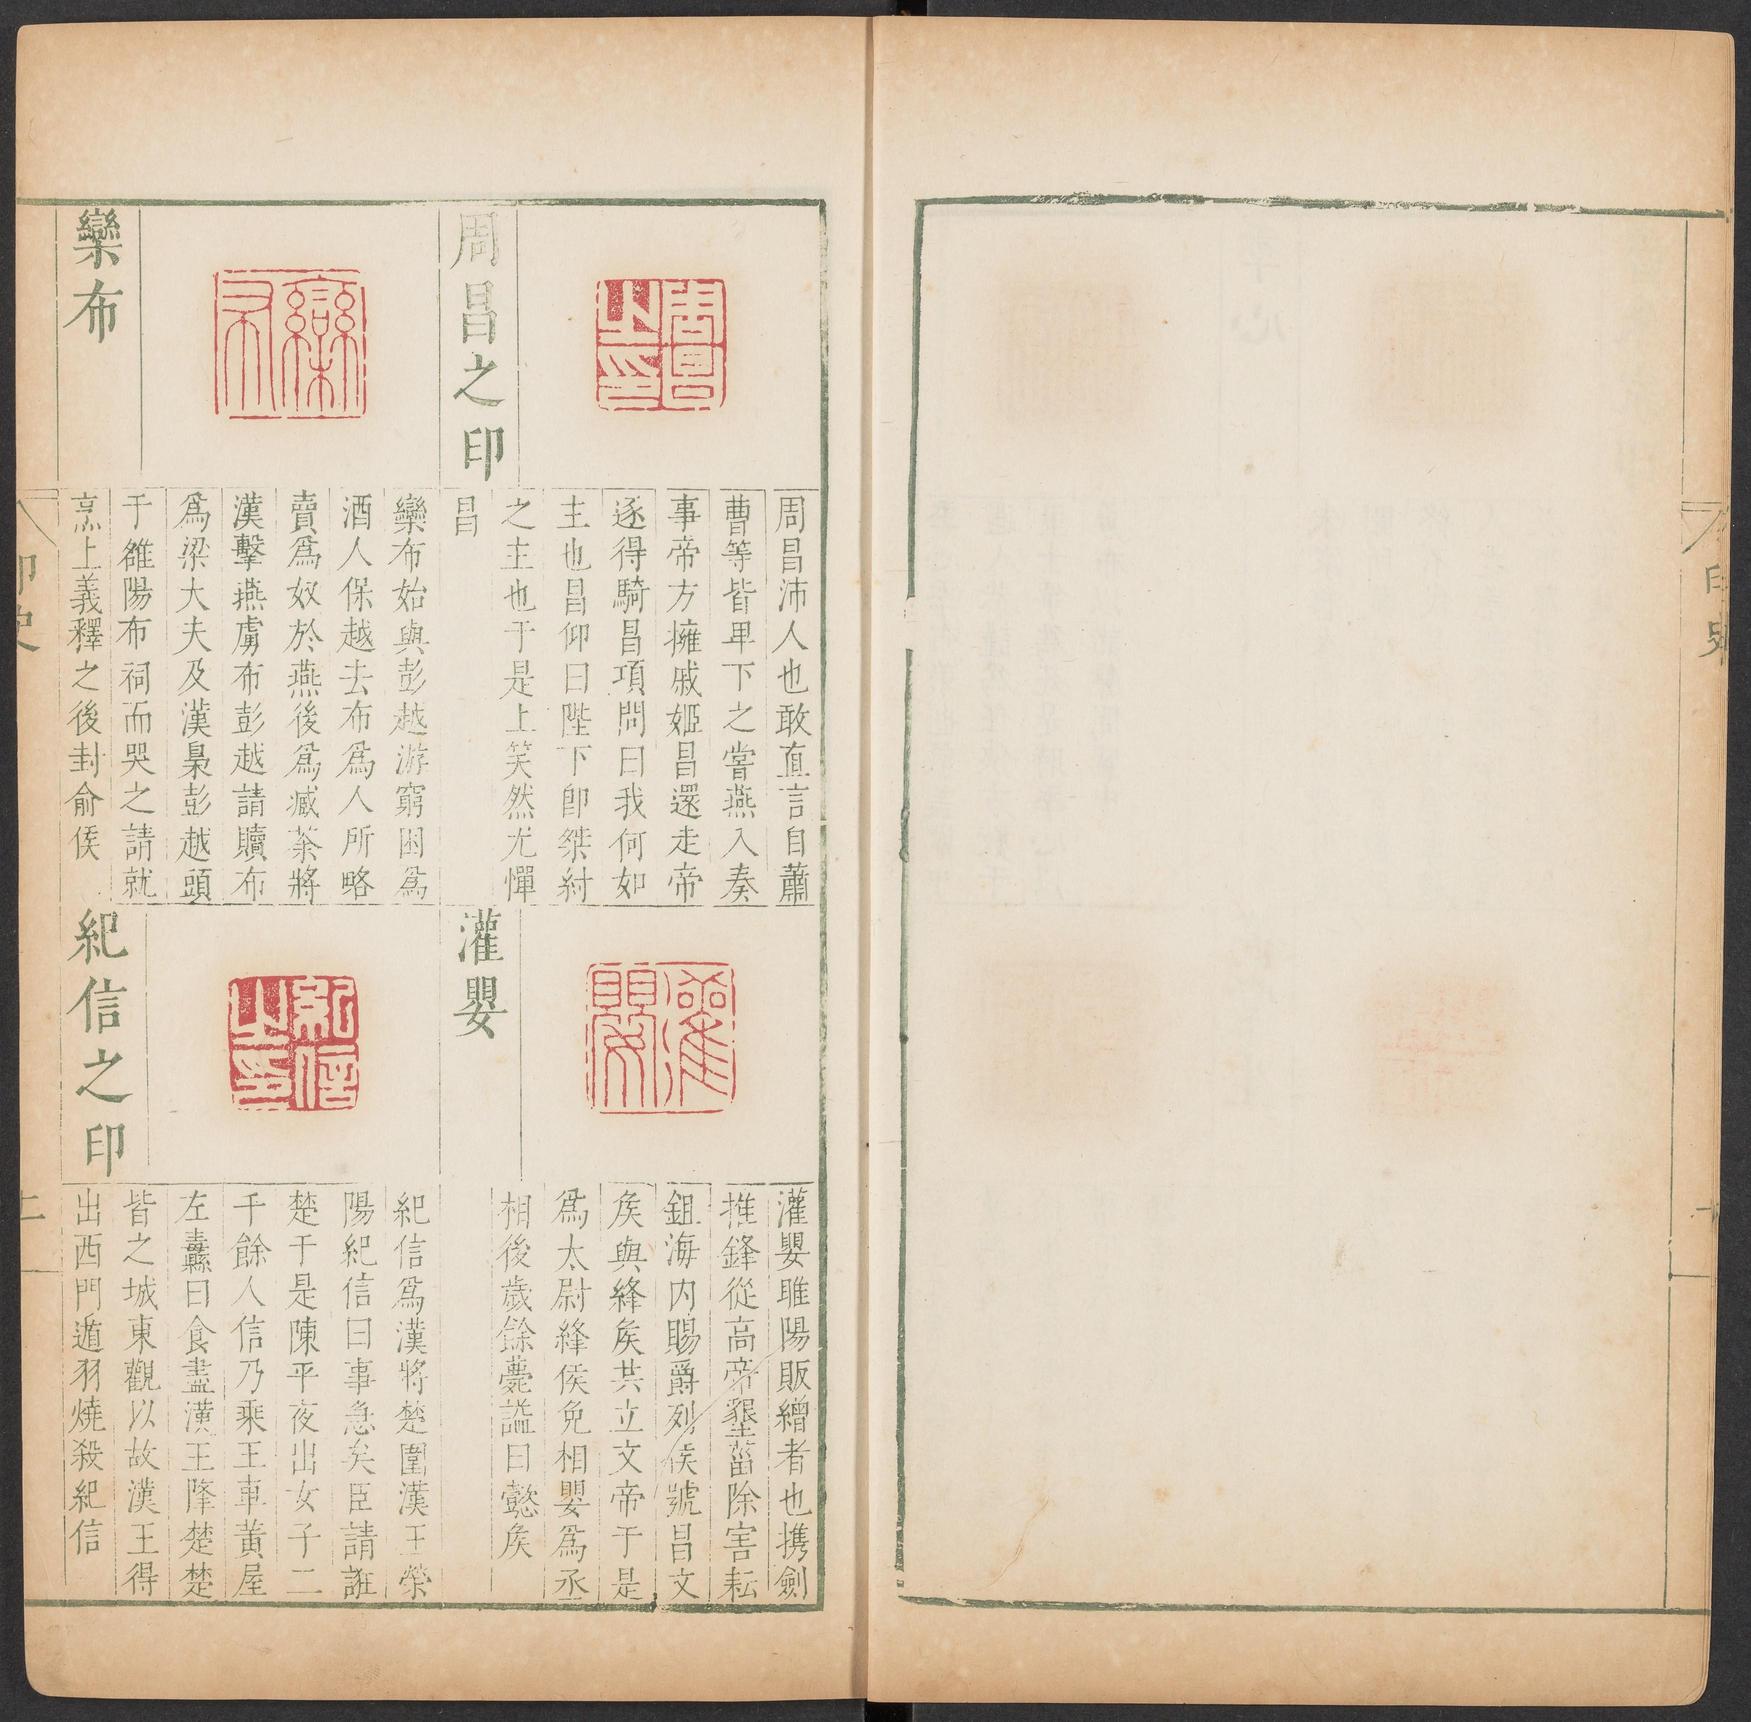 周昌之印
周昌沛人也敢直言自蕭
曹等皆卑下之嘗燕入奏
事帝方擁戚姬昌還走帝
逐得騎昌項問曰我何如
主也昌仰曰陛下卽桀紂
之主也于是上笑然尤憚
昌
欒布
欒布始與彭越游窮困爲
酒人保越去布爲人所略
賣爲奴於燕後爲臧荼將
漢擊燕虜布彭越請贖布
爲梁大夫及漢梟彭越頭
于雒陽布祠而哭之請就
烹上義釋之後封俞侯
灌嬰
灌嬰睢陽販繒者也携劍
推鋒從高帝墾菑除害耘
鉏海内賜爵列侯號昌文
矦與絳矦共立文帝于是
爲太尉絳侯免相嬰爲丞
相後歲餘薨謚曰懿矦
紀信之印
紀信爲漢將楚圍漢王滎
陽紀信曰事急矣臣請誑
楚于是陳平夜出女子二
千餘人信乃乘王車黃屋
左纛曰食盡漢王降楚楚
皆之城東觀以故漢王得
出西門遁羽燒殺紀信
印史